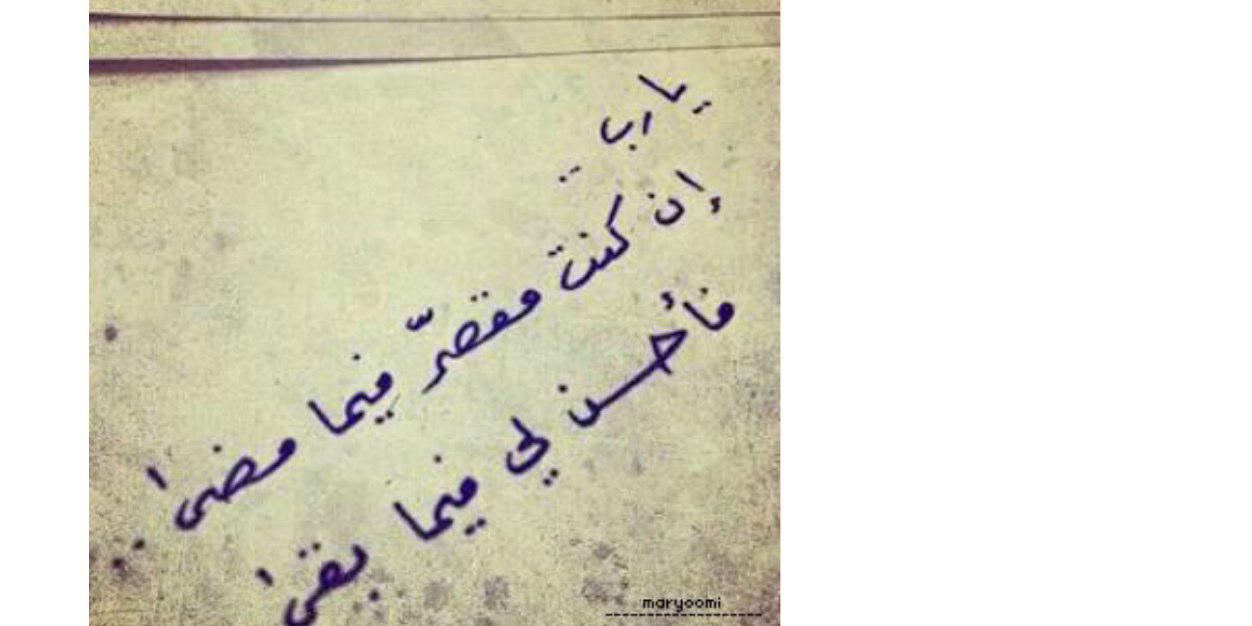 يا رب ..
إن كنت مقصّر فيما مضىٰ ..
فأحسن لي فيما بقىٰ
maryoomi